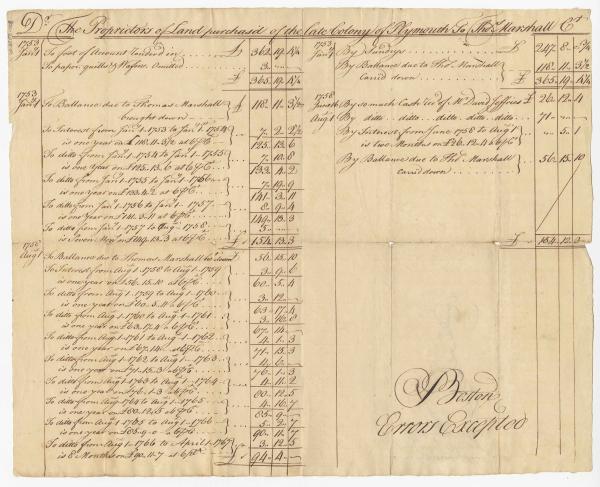 Dr. The Proprietors of Land purchas'd of the late Colony of Plymouth To Thos. Marshall Cr.
1753 Jany 1 To foot of Account rendred in £ 362..19..
To paper, quills & Wafers Omitted 3..
£ 365..19..
1753 Jany 1 To Ballance due to Thomas Marshall brought down 118..11..
To Interest from Jany 1-1753 to Jany 1-1754
is one year on £118..11.. at 6 pCt 7..2..
125..13..6
To ditto from Jany 1-1754 to Jany 1-1755
is one year on £125..13..6 at 6 pCt 7..10..8
133..4..2
To ditto from Jany 1-1755 to Jany 1-1756
is one year on £133..4..2 at 6 pCt 7..19..9
141..3..11
To ditto from Jany 1-1756 to Jany 1-1757
is one year on £141..3..11 at 6 pCt 8..9..4
149..13..3
To ditto from Jany 1-1757 to Aug 1758
at 6 pCt 5..
£ 154..13..3
1758 Augt 1 To Ballance due to Thomas Marshall 56..15..10
To Interest from Aug 1-1758 to Aug 1-1759
is one year on £56..15..10 at 6 pCt 3..9..6
60..5..4
To ditto from Aug 1-1759 to Aug 1-1760
is one year on £60..5..4 at 6 pCt 3..12
63..17..4
To ditto from Aug 1-1760 to Aug 1-1761
is one year on £63..17..4 at 6 pCt 3..16..8
67..14
To ditto from Aug 1-1761 to Aug 1-1762
is one year on £67..14 at 6 pCt 4..1..3
71..15..3
To ditto from Aug 1-1762 to Aug 1-1763
is one year on £71..15..3 at 6 pCt 4..6
76..1..3
To ditto from Aug 1-1763 to Aug 1-1764
is one year on £76..1..3 at 6 pCt 4..11..2
80..12..5
To ditto from Aug 1-1764 to Aug 1-1765
is one year on £80..12..5 at 6 pCt 4..16..7
85..9
To ditto from Aug 1-1765 to Aug 1-1766
is one year on £85..9..0 at 6 pCt 5..2..7
90..11..7
To ditto from Aug 1-1766 to April 1-1767
is 8 Months on £90..11..7 at 6 pCt 3..12..5
£ 94..4
1753 Jany 1 By Sundrys £ 247..8
By Ballance due to Thos. Marshall
carried down 118..11..
£ 365..19..
1758
Augt 1
By so much Cash rec'd of Mr David Jeffries £ 26..12..4
By ditto ditto ditto ditto ditto 71
By Interest from June 1758 to Aug 1
is two Months on £26..12..4 at 6 pCt 5..1
By Ballance due to Thos. Marshall
carried down 56..15..10
£ 154..12..3
Boston
Errors Excepted